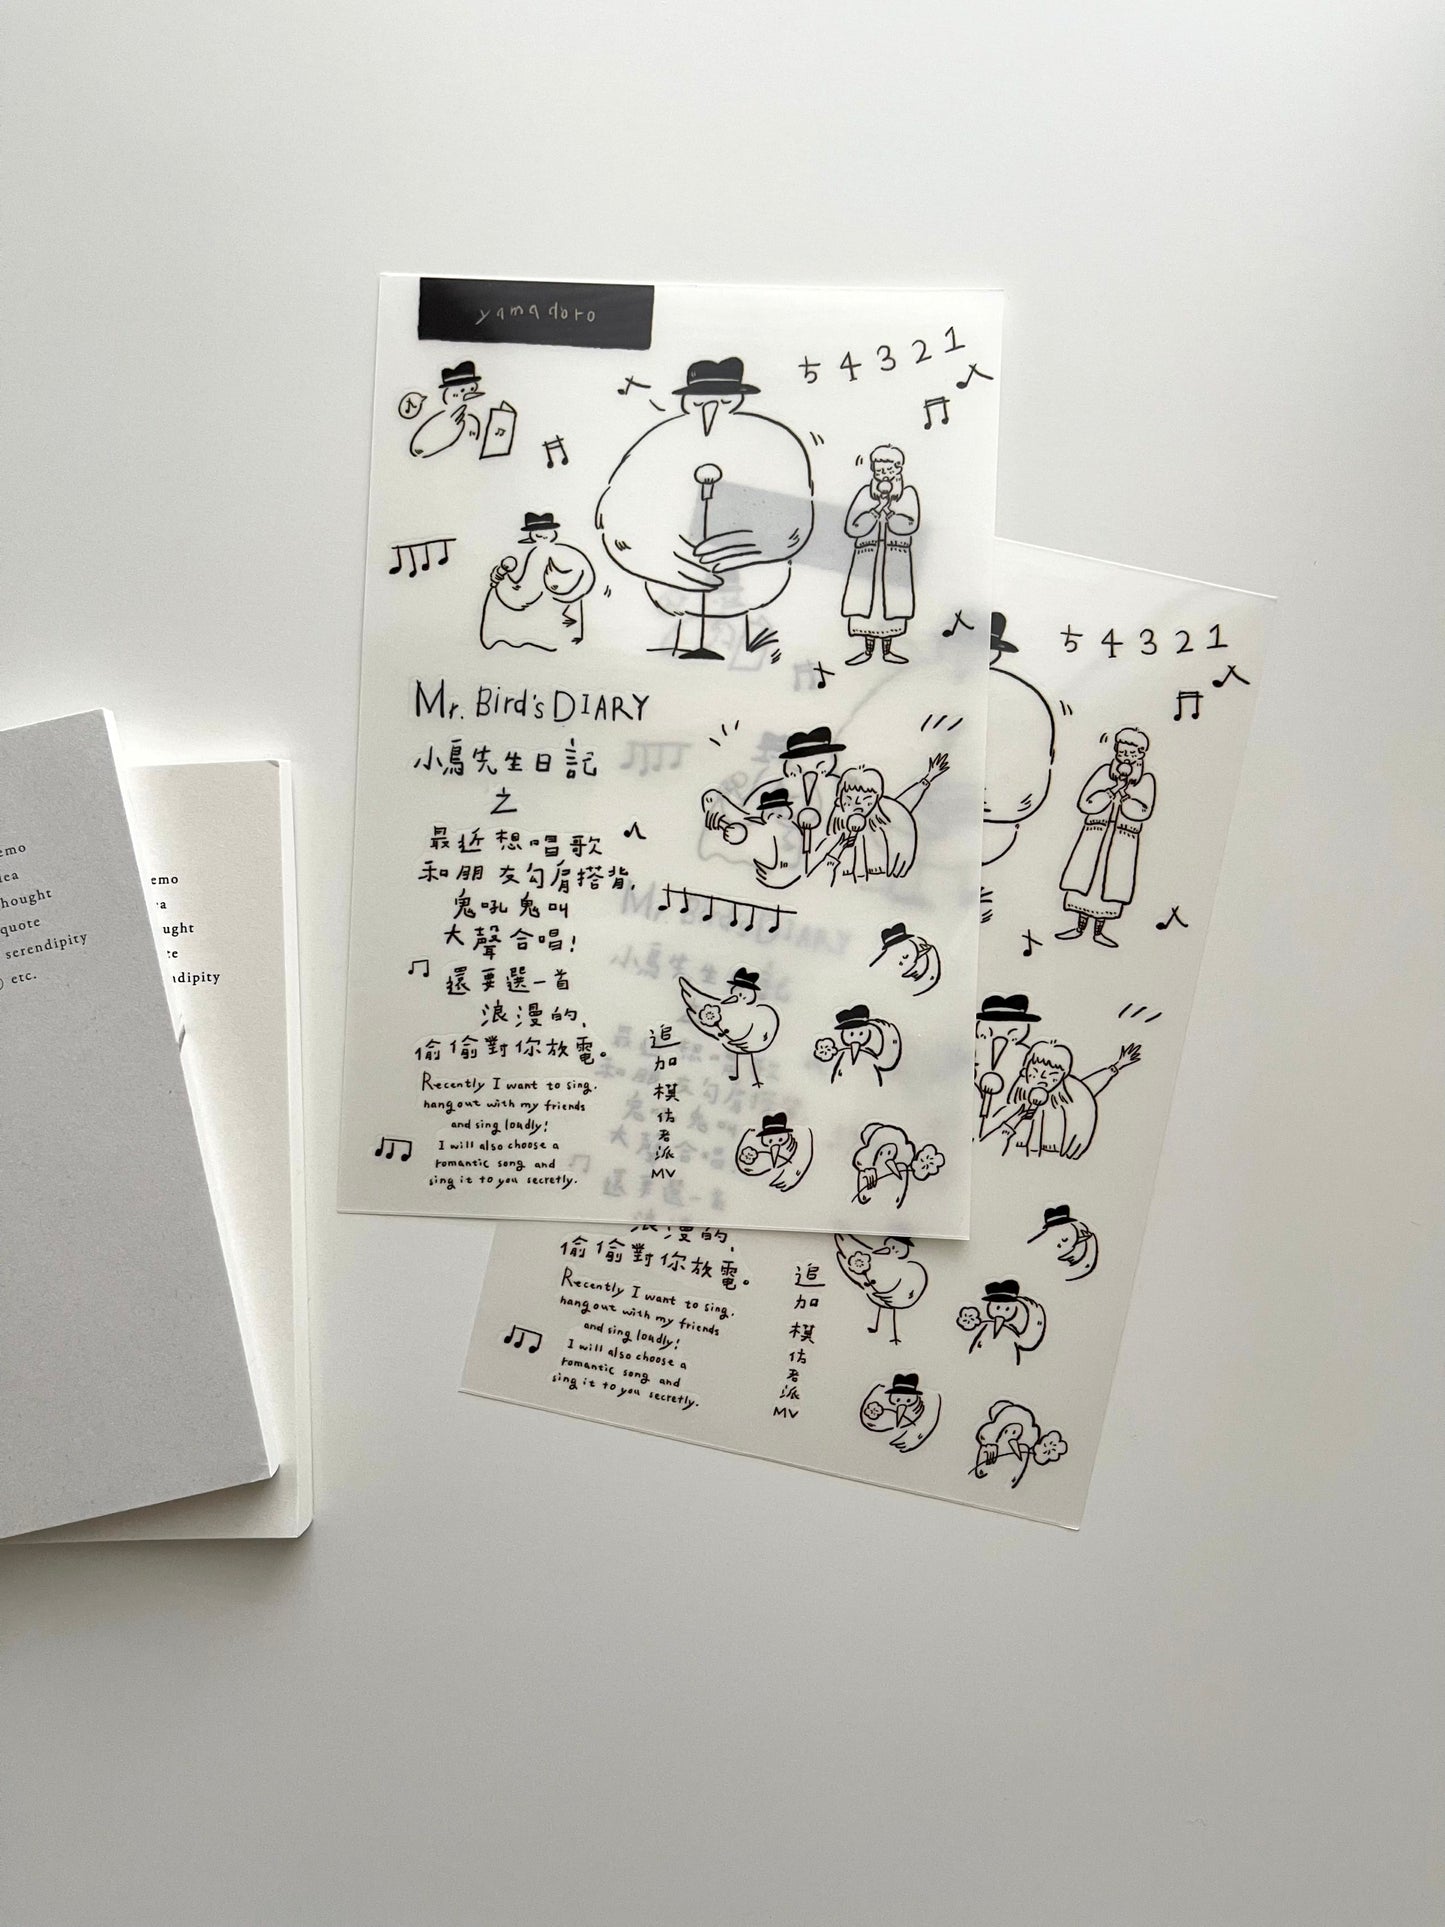 yamadoro
5 4 3 2 1
Mr. Bird's DIARY
小鳥先生日記
之
最近想唱歌
和朋友勾肩搭背,
鬼吼鬼叫
大聲合唱!
還要選一首
浪漫的,
偷偷對你放電。
Recently I want to sing.
hang out with my friends
and sing loudly!
I will also choose a
romantic song and
sing it to you secretly.
追
加
模
仿
老
派
MV
5 4 3 2 1
浪漫的,
偷偷對你放電。
Recently I want to sing.
hang out with my friends
and sing loudly!
I will also choose a
romantic song and
sing it to you secretly.
追
加
模
仿
老
派
MV
emo
hought
quote
serendipity
etc.
emo
ught
ndipity